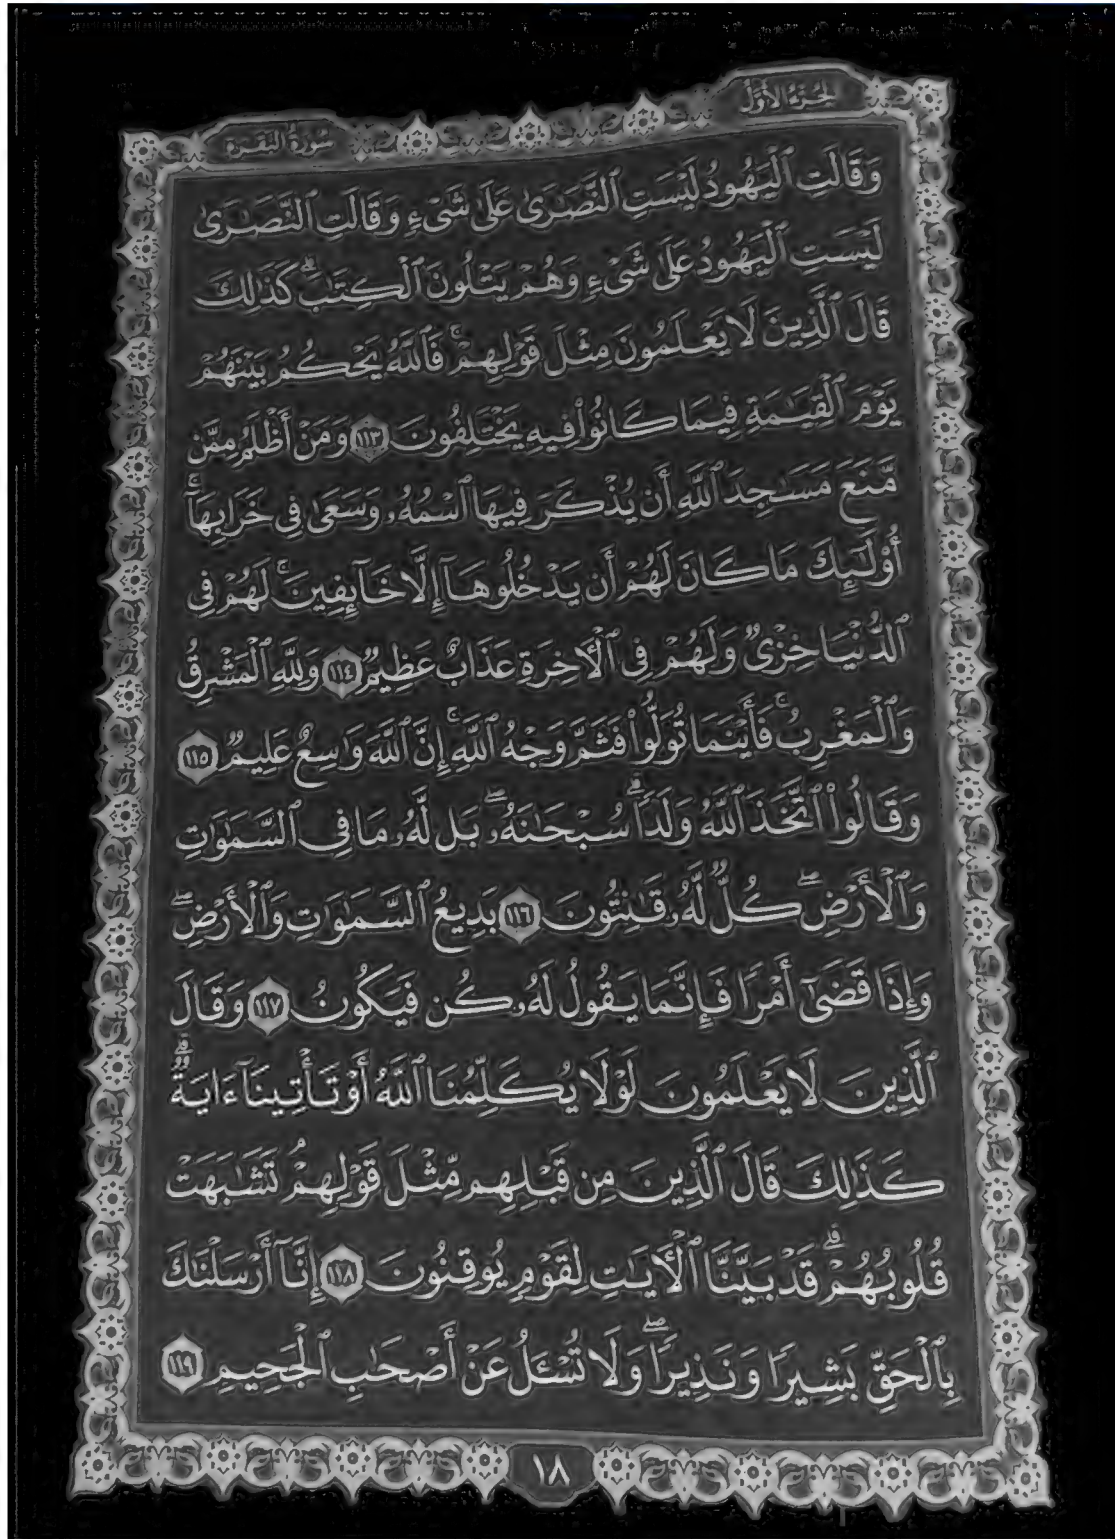 الجزء الأول
سورة البقرة
وَقَالَتِ ٱلْيَهُودُ لَيْسَتِ ٱلنَّصَٰرَىٰ عَلَىٰ شَىْءٍ وَقَالَتِ ٱلنَّصَٰرَىٰ
لَيْسَتِ ٱلْيَهُودُ عَلَىٰ شَىْءٍ وَهُمْ يَتْلُونَ ٱلْكِتَٰبَۗ كَذَٰلِكَ
قَالَ ٱلَّذِينَ لَا يَعْلَمُونَ مِثْلَ قَوْلِهِمْۚ فَٱللَّهُ يَحْكُمُ بَيْنَهُمْ
يَوْمَ ٱلْقِيَٰمَةِ فِيمَا كَانُوا۟ فِيهِ يَخْتَلِفُونَ ١١٣ وَمَنْ أَظْلَمُ مِمَّن
مَّنَعَ مَسَٰجِدَ ٱللَّهِ أَن يُذْكَرَ فِيهَا ٱسْمُهُۥ وَسَعَىٰ فِى خَرَابِهَآۚ
أُو۟لَٰٓئِكَ مَا كَانَ لَهُمْ أَن يَدْخُلُوهَآ إِلَّا خَآئِفِينَۚ لَهُمْ فِى
ٱلدُّنْيَا خِزْىٌ وَلَهُمْ فِى ٱلْأَخِرَةِ عَذَابٌ عَظِيمٌ ١١٤ وَلِلَّهِ ٱلْمَشْرِقُ
وَٱلْمَغْرِبُۚ فَأَيْنَمَا تُوَلُّوا۟ فَثَمَّ وَجْهُ ٱللَّهِۚ إِنَّ ٱللَّهَ وَٰسِعٌ عَلِيمٌ ١١٥
وَقَالُوا۟ ٱتَّخَذَ ٱللَّهُ وَلَدًاۗ سُبْحَٰنَهُۥۖ بَل لَّهُۥ مَا فِى ٱلسَّمَٰوَٰتِ
وَٱلْأَرْضِۖ كُلٌّ لَّهُۥ قَٰنِتُونَ ١١٦ بَدِيعُ ٱلسَّمَٰوَٰتِ وَٱلْأَرْضِۖ
وَإِذَا قَضَىٰٓ أَمْرًا فَإِنَّمَا يَقُولُ لَهُۥ كُن فَيَكُونُ ١١٧ وَقَالَ
ٱلَّذِينَ لَا يَعْلَمُونَ لَوْلَا يُكَلِّمُنَا ٱللَّهُ أَوْ تَأْتِينَآ ءَايَةٌۗ
كَذَٰلِكَ قَالَ ٱلَّذِينَ مِن قَبْلِهِم مِّثْلَ قَوْلِهِمْۘ تَشَٰبَهَتْ
قُلُوبُهُمْۗ قَدْ بَيَّنَّا ٱلْأَيَٰتِ لِقَوْمٍ يُوقِنُونَ ١١٨ إِنَّآ أَرْسَلْنَٰكَ
بِٱلْحَقِّ بَشِيرًا وَنَذِيرًاۖ وَلَا تُسْـَٔلُ عَنْ أَصْحَٰبِ ٱلْجَحِيمِ ١١٩
١٨